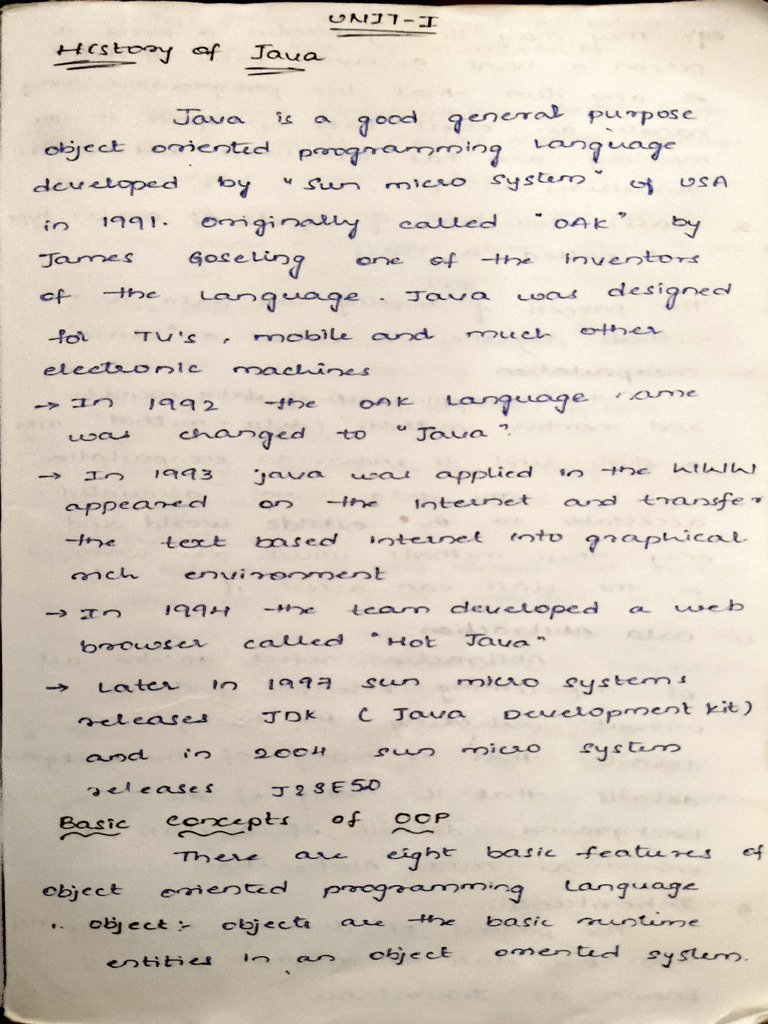 UNIT-I
History of Java
Java is a good general purpose
object oriented programming Language
developed by "Sun micro system" of USA
in 1991. originally called "OAK" by
James Goseling one of the inventors
of the Language. Java was designed
for TV's, mobile and much other
electronic machines
→ In 1992 the OAK Language name
was changed to "Java".
→ In 1993 java was applied in the WWW
appeared on the internet and transfer
the text based internet into graphical
rich environment
→ In 1994 the team developed a web
browser called "Hot Java"
→ Later in 1997 sun micro systems
releases JDK (Java Development kit)
and in 2004 sun micro system
releases J2SE50
Basic concepts of OOP
There are eight basic features of
object oriented programming Language
1. object:- objects are the basic runtime
entities in an object oriented system.